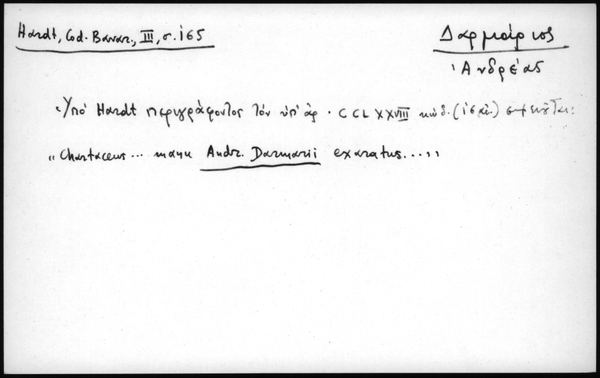 Hardt, Cod. Bavar., III, σ. 165
Δαρμάριος
Ἀνδρέας
Ὑπὸ Hardt περιγράφοντος τὸν ὑπ' ἀρ. CCLXXVIII κώδ.
„Chartaceus... manu Andr. Darmarii exaratus...."